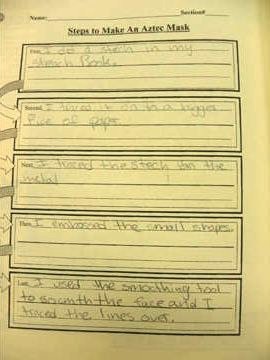 Name: Section#
Steps to Make An Aztec Mask
First, I do a stech in my
stech Book.
Second, I traced it on to a bigger
Pice of paper.
Next, I traced the stech on the
metal
Then, I embossed the small shapes.
Last, I used the smoothing tool
to smooth the face and I
traced the lines over.